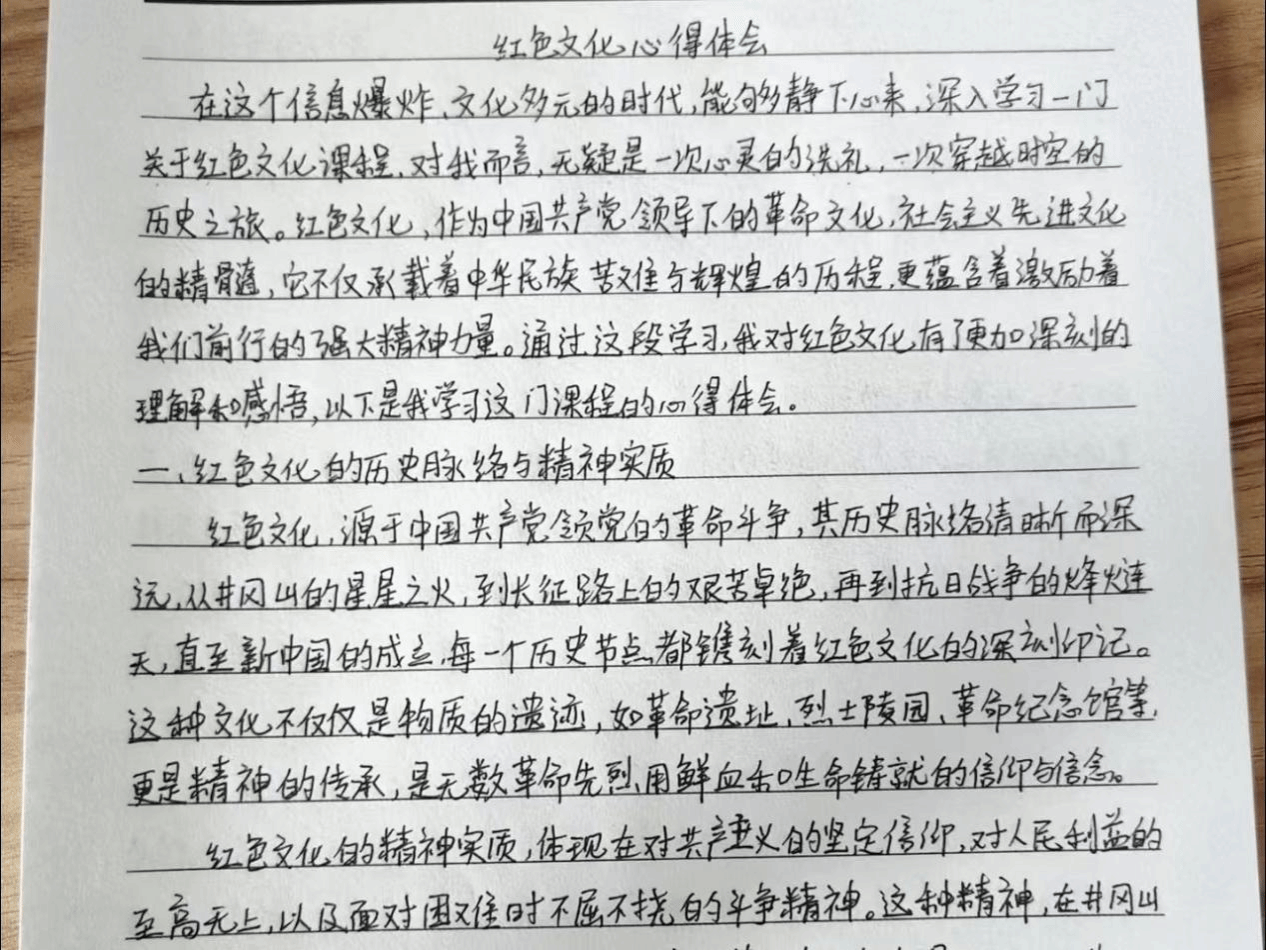 红色文化心得体会
在这个信息爆炸、文化多元的时代,能够静下心来,深入学习一门
关于红色文化课程,对我而言,无疑是一次心灵的洗礼,一次穿越时空的
历史之旅。红色文化,作为中国共产党领导下的革命文化,社会主义先进文化
的精髓,它不仅承载着中华民族苦难与辉煌的历程,更蕴含着激励着
我们前行的强大精神力量。通过这段学习,我对红色文化有了更加深刻的
理解和感悟,以下是我学习这门课程的心得体会。
一、红色文化的历史脉络与精神实质
红色文化,源于中国共产党领党的革命斗争,其历史脉络清晰而深
远,从井冈山的星星之火,到长征路上的艰苦卓绝,再到抗日战争的烽火连
天,直至新中国的成立,每一个历史节点都镌刻着红色文化的深刻印记。
这种文化不仅仅是物质的遗迹,如革命遗址、烈士陵园、革命纪念馆等,
更是精神的传承,是无数革命先烈用鲜血和生命铸就的信仰与信念。
红色文化的精神实质,体现在对共产主义的坚定信仰、对人民利益的
至高无上,以及面对困难时不屈不挠的斗争精神。这种精神,在井冈山